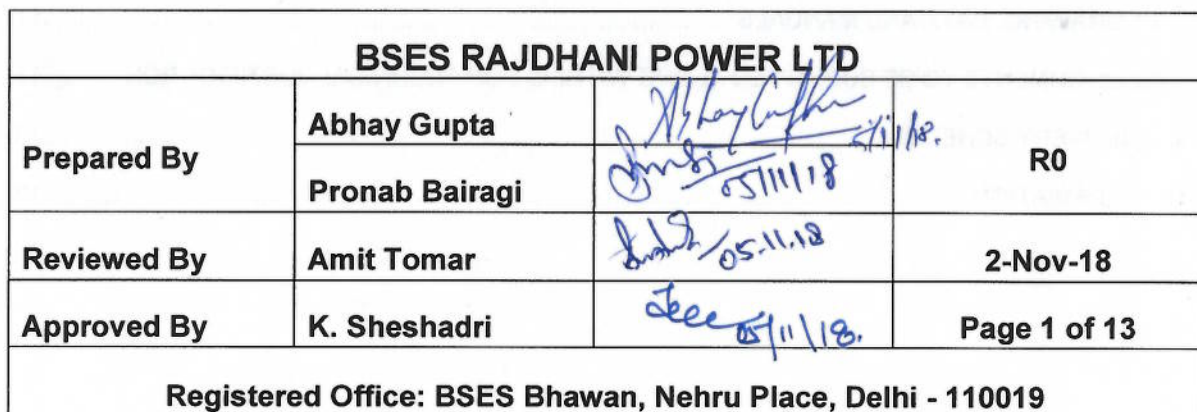 BSES RAJDHANI POWER LTD
Prepared By
Abhay Gupta
Abhay Gupta
5/11/18.
Pronab Bairagi
05/11/18
R0
Reviewed By
Amit Tomar
05.11.18
2-Nov-18
Approved By
K. Sheshadri
05/11/18.
Page 1 of 13
Registered Office: BSES Bhawan, Nehru Place, Delhi - 110019